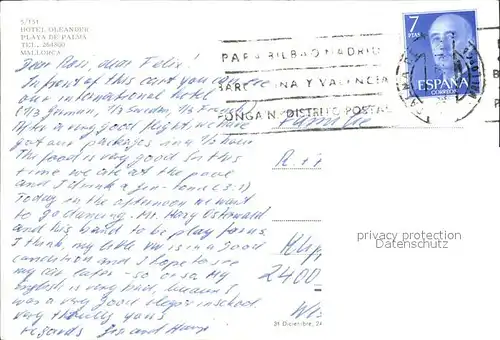 5/131
HOTEL OLEANDER
PLAYA DE PALMA
TEL. 264850
MALLORCA
Dear Rosi, dear Felix!
In front of this card you can see
our international hotel
(1/3 German, 1/3 Swedn, 1/3 French)
After a very good flight we have
got our packages in a 1/2 hour
The food is very good. In this
time we are at the pool
and I drink a gin-tonic (3:1)
Today in the afternoon we want
to go dancing. Mr. Hary Osterwald
and his band to be play for us.
I think, my little VW is in a good
condition and I hope to see
my car later - so or so. My
English is very bad, because I
was a very good sleeper in school.
Very thruly yours
regards Iris and Harry
PARA BILBAO MADRID
BARCELONA Y VALENCIA
PONGA N.º DISTRITO POSTAL
7
PTAS
ESPAÑA
CORREOS
Familie
R.
2400
privacy protection
Datenschutz
21 Diciembre, 24